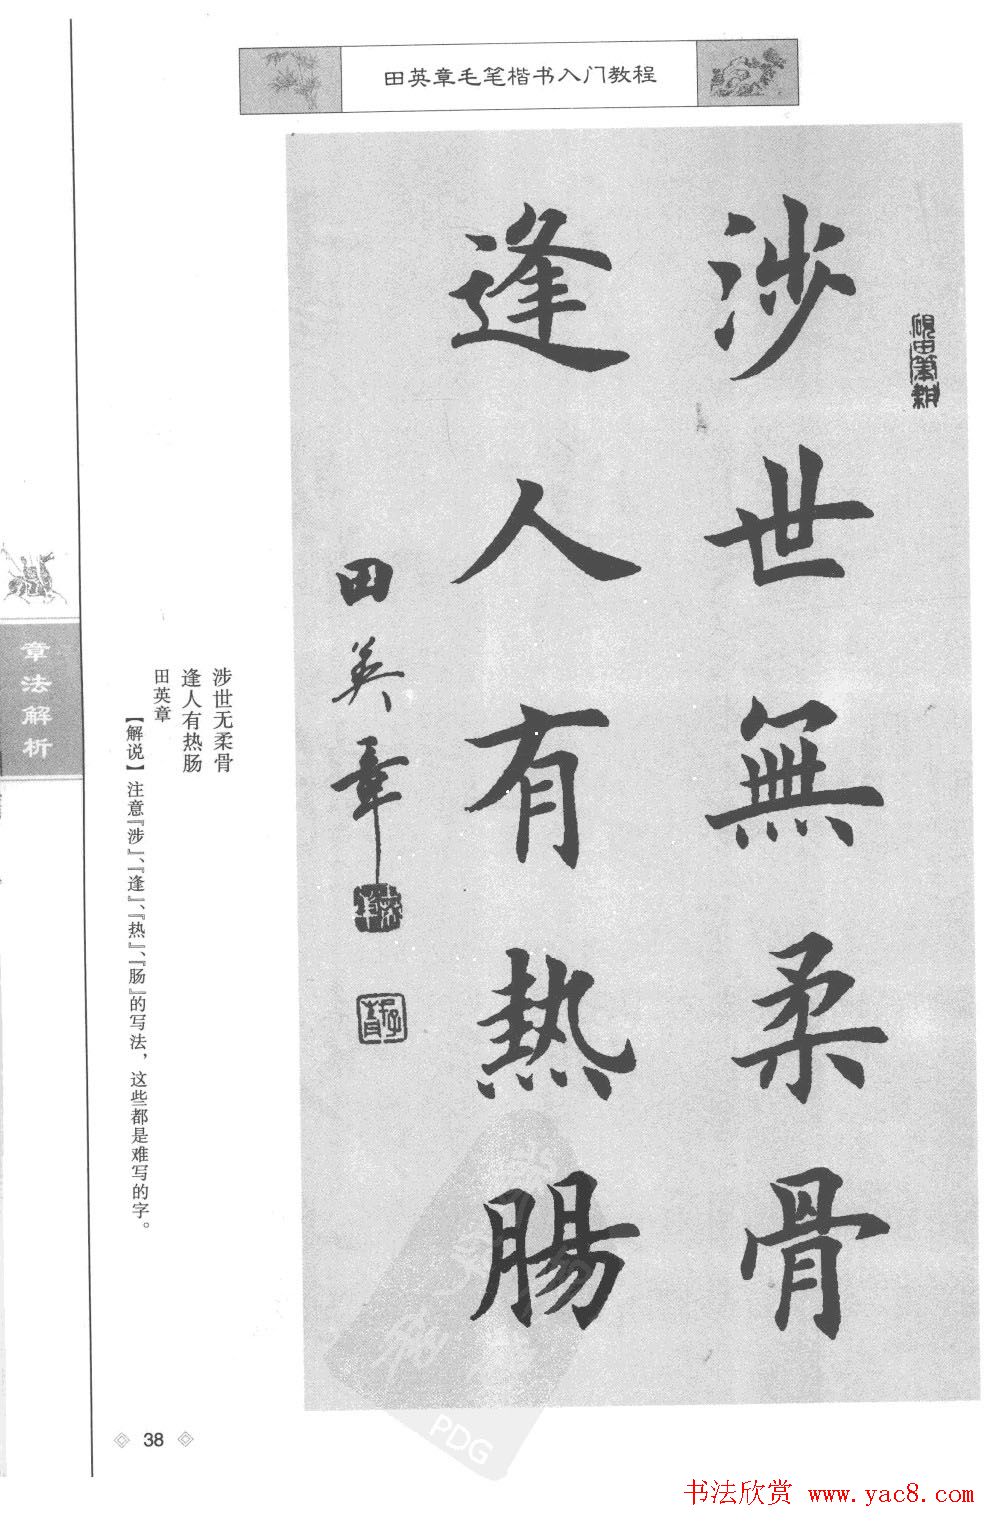 田英章毛笔楷书入门教程
涉世無柔骨
逢人有热肠
田英章
砚田笔耕
涉世无柔骨
逢人有热肠
田英章
【解说】注意『涉』、『逢』、『热』、『肠』的写法，这些都是难写的字。
章法解析
38
PDG
书法欣赏 www.yac8.com